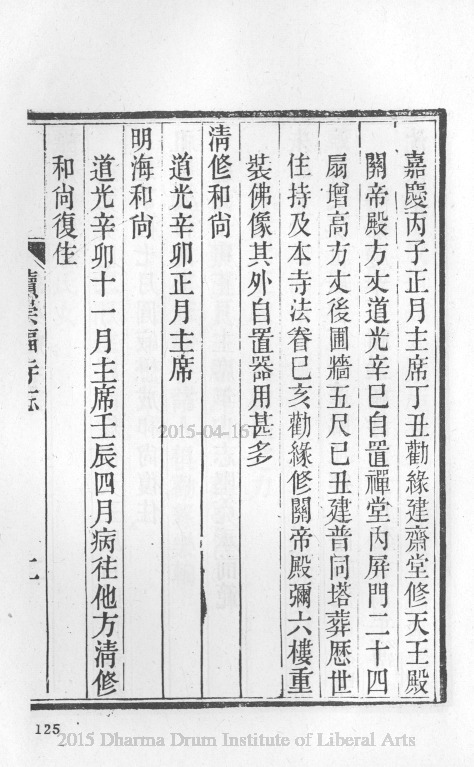 嘉慶丙子正月主席丁丑勸緣建齋堂修天王殿
關帝殿方丈道光辛巳自置禪堂内屏門二十四
扇增高方丈後圃牆五尺己丑建普同塔葬歷世
住持及本寺法眷己亥勸緣修關帝殿彌六樓重
裝佛像其外自置器用甚多
淸修和尙
道光辛卯正月主席
明海和尙
道光辛卯十一月主席壬辰四月病往他方淸修
和尙復住
續崇福寺志
125
2015-04-16
2015 Dharma Drum Institute of Liberal Arts